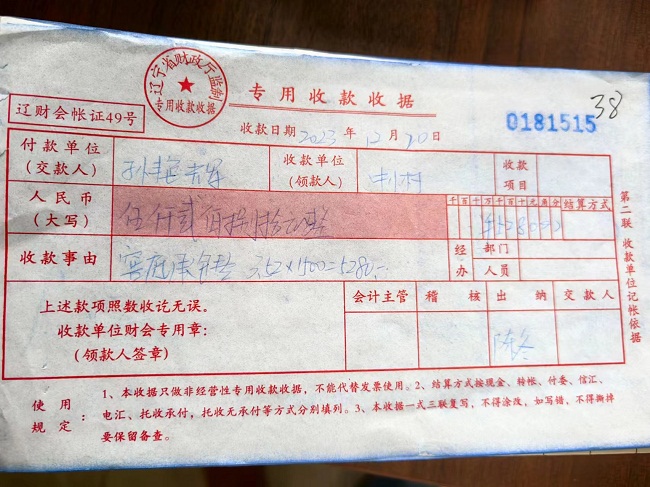 辽宁省财政厅监制
专用收款收据
专用收款收据
辽财会帐证49号
收款日期 2023 年 12 月 20 日
0181515
38
付款单位
(交款人)
收款单位
(领款人)
收款
项目
人民币
(大写)
伍仟贰佰捌拾元整
千百十万千百十元角分
结算方式
¥528000
收款事由
经办
部门
人员
上述款项照数收讫无误。
收款单位财会专用章:
(领款人签章)
会计主管
稽核
出纳
交款人
第二联 收款单位记帐依据
使用规定:
1、本收据只做非经营性专用收款收据,不能代替发票使用。2、结算方式按现金、转帐、付委、信汇、
电汇、托收承付,托收无承付等方式分别填列。3、本收据一式三联复写,不得涂改,如写错,不得撕掉
要保留备查。